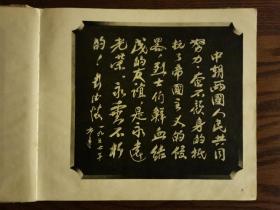 中朝两國人民共同
努力、奮不顧身的抵
抗了帝國主义的侵
略，烈士们鲜血结
成的友谊，是永遠
光荣、永垂不朽
的！彭德懷
一九五七年